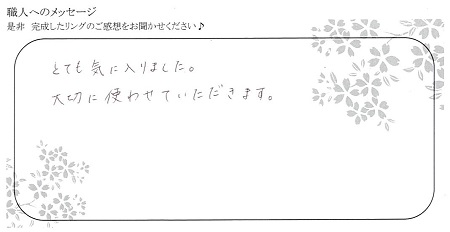 職人へのメッセージ
是非 完成したリングのご感想をお聞かせください♪
とても気に入りました。
大切に使わせていただきます。